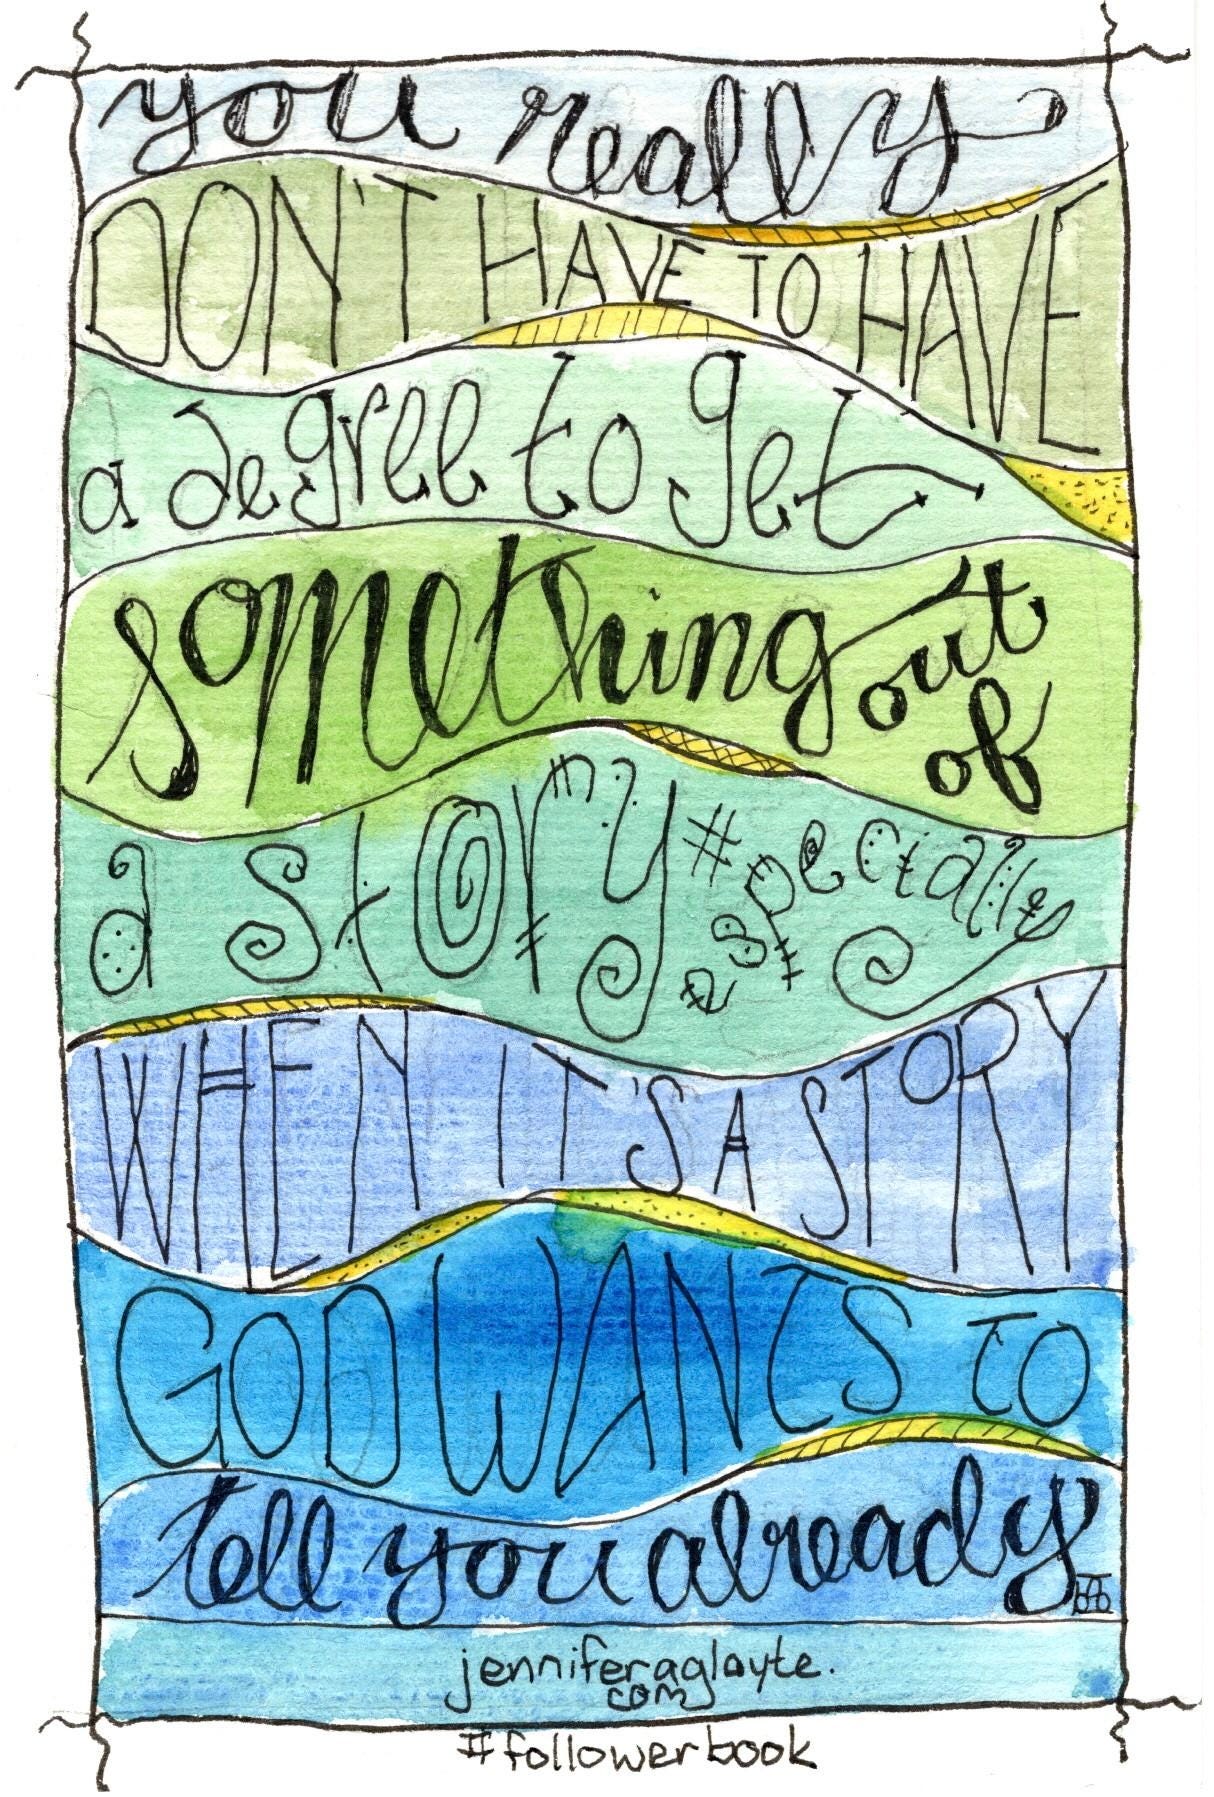 you really
DON'T HAVE TO HAVE
a degree to get
something out of
a story #especially
WHEN IT'S A STORY
GOD WANTS TO
tell you already
jenniferaglayte.
com
#followerbook